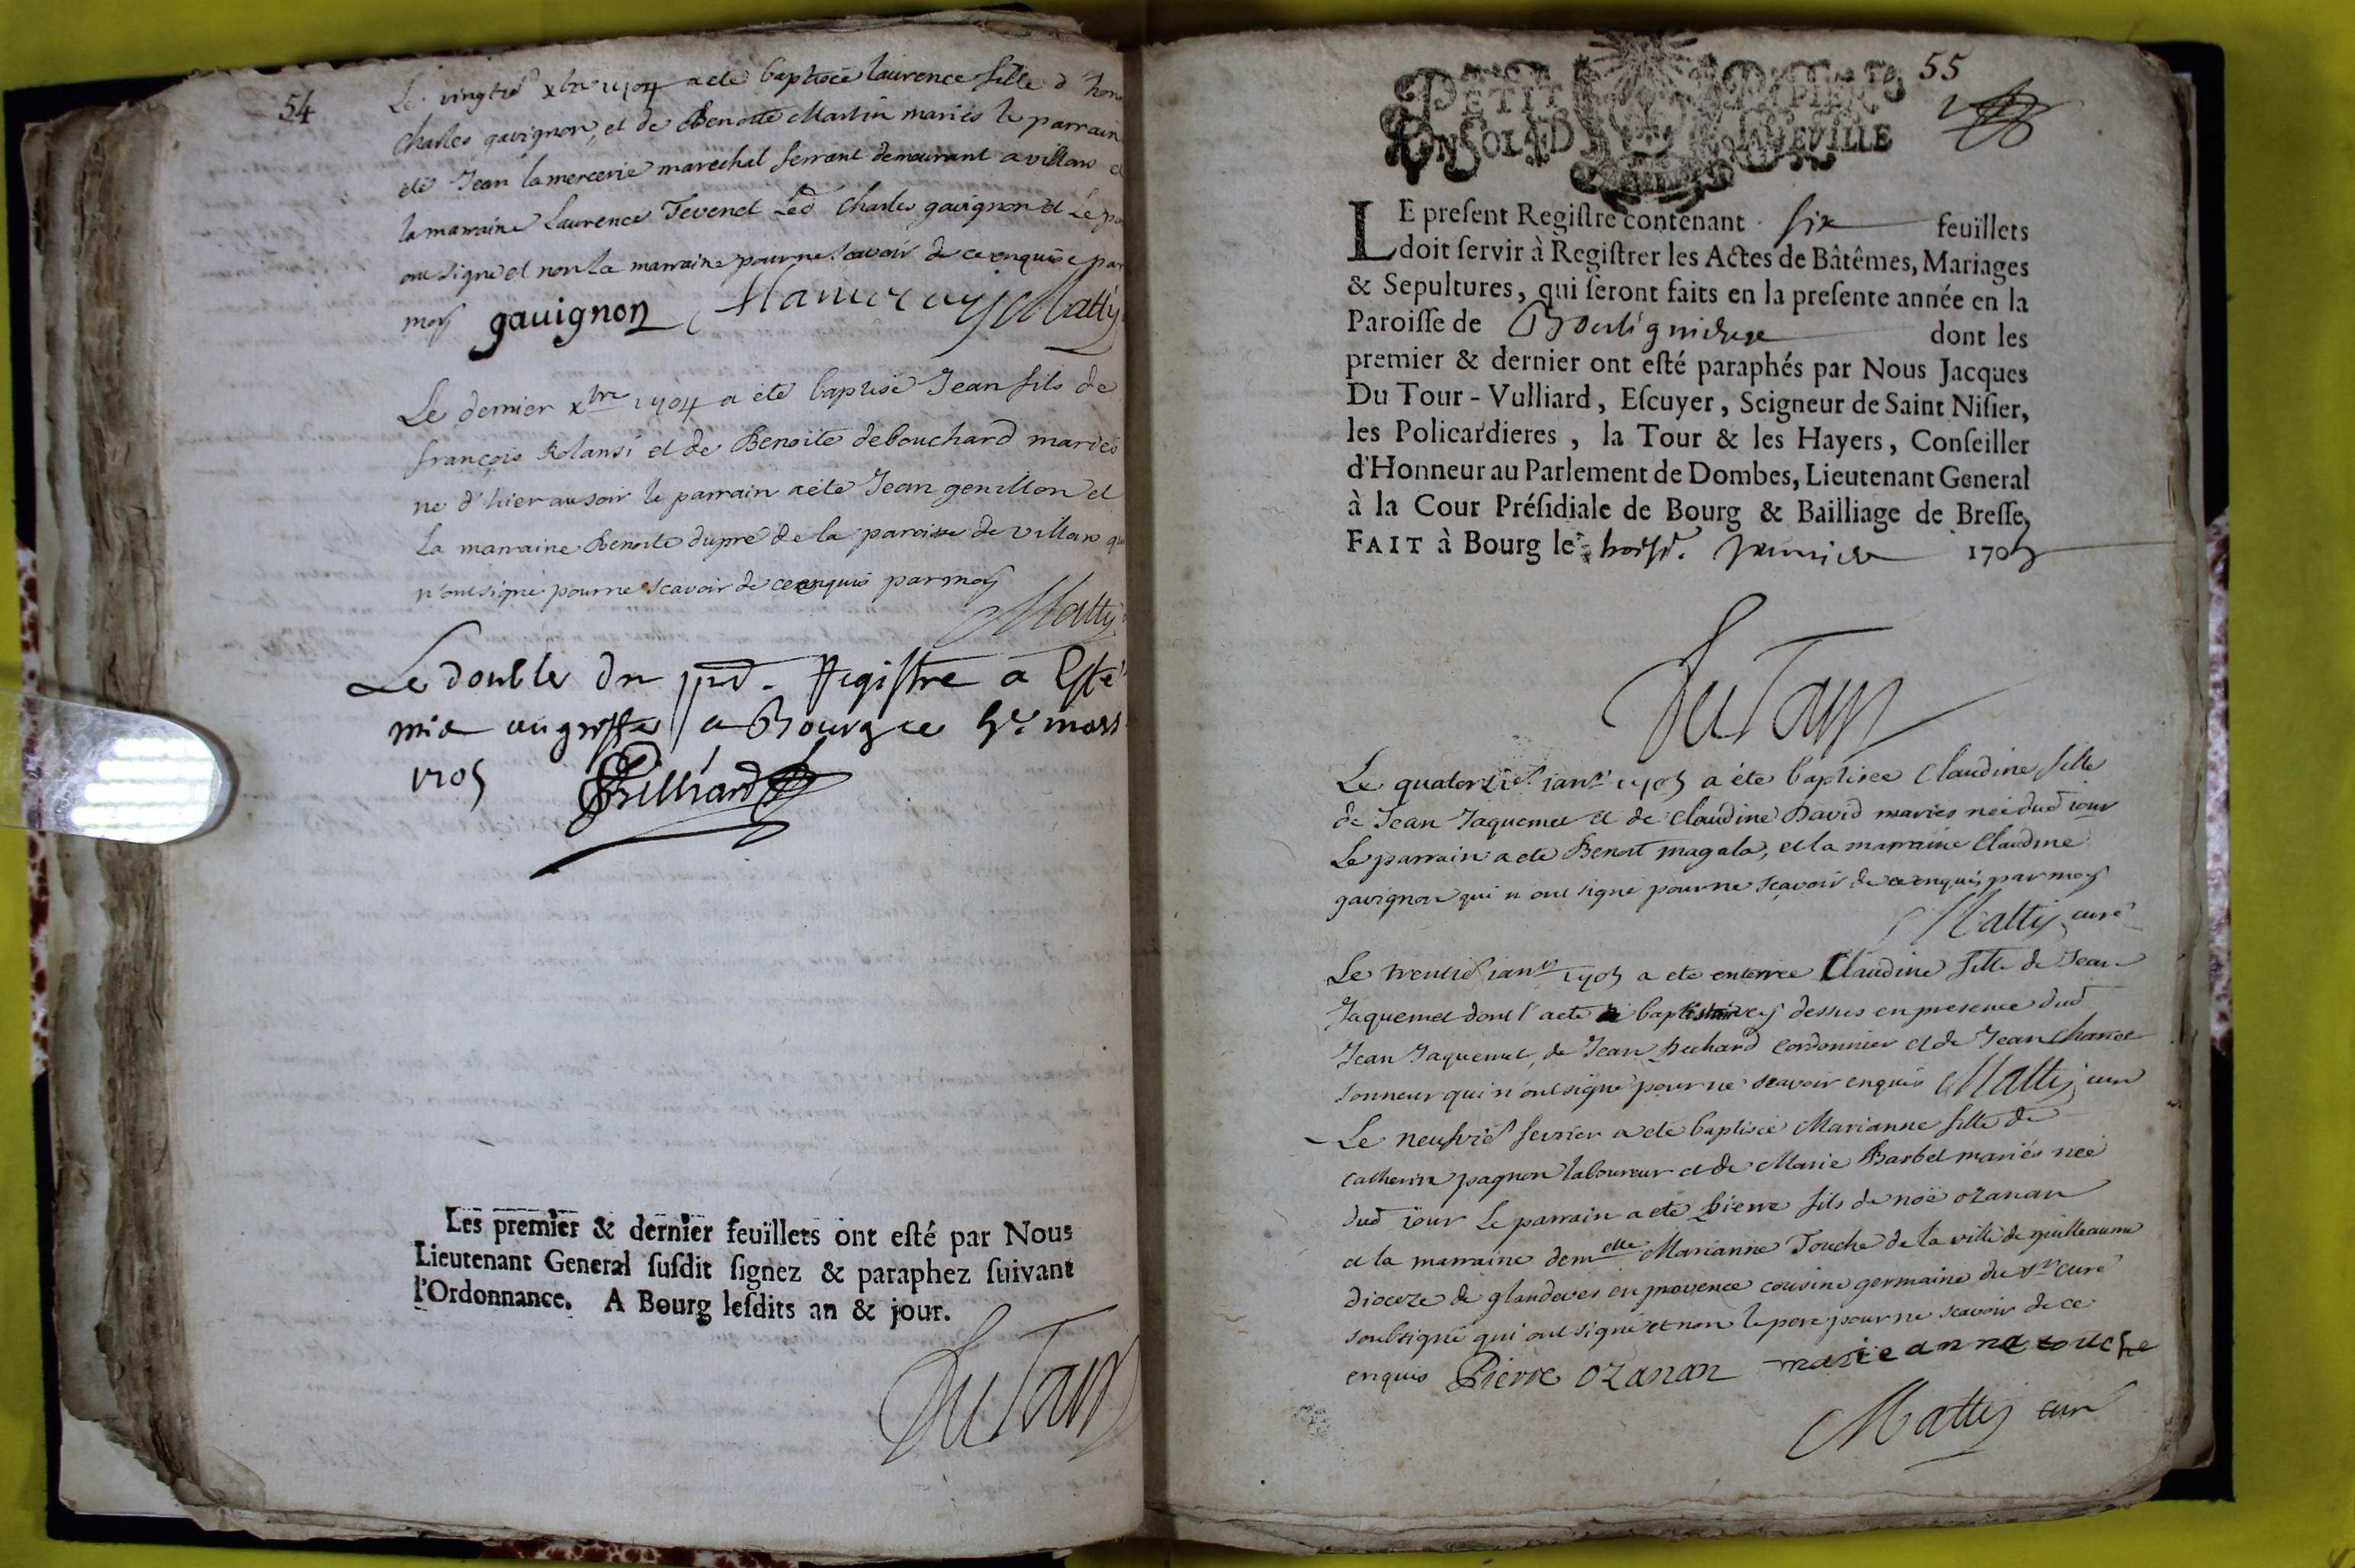 54
Le vingtie xbre 1704 a ete baptisée laurence fille d'hon
Charles gavignon, et de Benoite Martin mariés le parrain
ete Jean lamercerie marechal ferrant demeurant a villars e
la marraine Laurence Tevenet Led Charles gavignon et Le pa
ont signé et non la marraine pour ne scavoir de ce enquise par
moy gauignon Matty
Le dernier xbre 1704 a ete baptisé Jean fils de
françois Rolansi et de Benoite debouchard mariés
ne d'hier au soir le parrain a ete Jean genillon et
La marraine Benoite dupré de la paroisse de villars qui
n'ont signé pour ne scavoir de ce enquis par moy
Matty
Le double du pnt. Registre a Esté
mis au greffe a Bourg ce 5e mars
1705
Les premier & dernier feuillets ont esté par Nous
Lieutenant General susdit signez & paraphez suivant
l'Ordonnance. A Bourg lesdits an & jour.
DuTour
55
PETIT PAPIER
LE present Registre contenant six feuillets
doit servir à Registrer les Actes de Bâtêmes, Mariages
& Sepultures, qui seront faits en la presente année en la
Paroisse de dont les
premier & dernier ont esté paraphés par Nous Jacques
Du Tour-Vulliard, Escuyer, Seigneur de Saint Nisier,
les Policardieres, la Tour & les Hayers, Conseiller
d'Honneur au Parlement de Dombes, Lieutenant General
à la Cour Présidiale de Bourg & Bailliage de Bresse,
FAIT à Bourg le janvier 1705
DuTour
Le quatorzie janr 1705 a été baptisée Claudine fille
de Jean Jaquemet et de Claudine David mariés née dud jour
Le parrain a ete Benoit magala, et la marraine Claudine
gavignon qui n'ont signé pour ne scavoir de ce enquis par moy
Matty curé
Le trentie janr 1705 a ete enterree Claudine fille de Jean
Jaquemet dont l'acte baptistaire cy dessus en presence dud
Jean Jaquemet, de Jean Bechard cordonnier et de Jean Chanel
sonneur qui n'ont signé pour ne scavoir enquis Matty curé
Le neufvie fevrier a ete baptisée Marianne fille de
Catherin pagnon laboureur et de Marie Barbet mariés née
dud jour Le parrain a ete pierre fils de noë ozanan
et la marraine demelle Marianne Touche de la ville de guilleaume
dioceze de glandeves en provence cousine germaine du sr curé
soubsigné qui ont signé et non le pere pour ne scavoir de ce
enquis Pierre ozanan marie anne touche
Matty curé